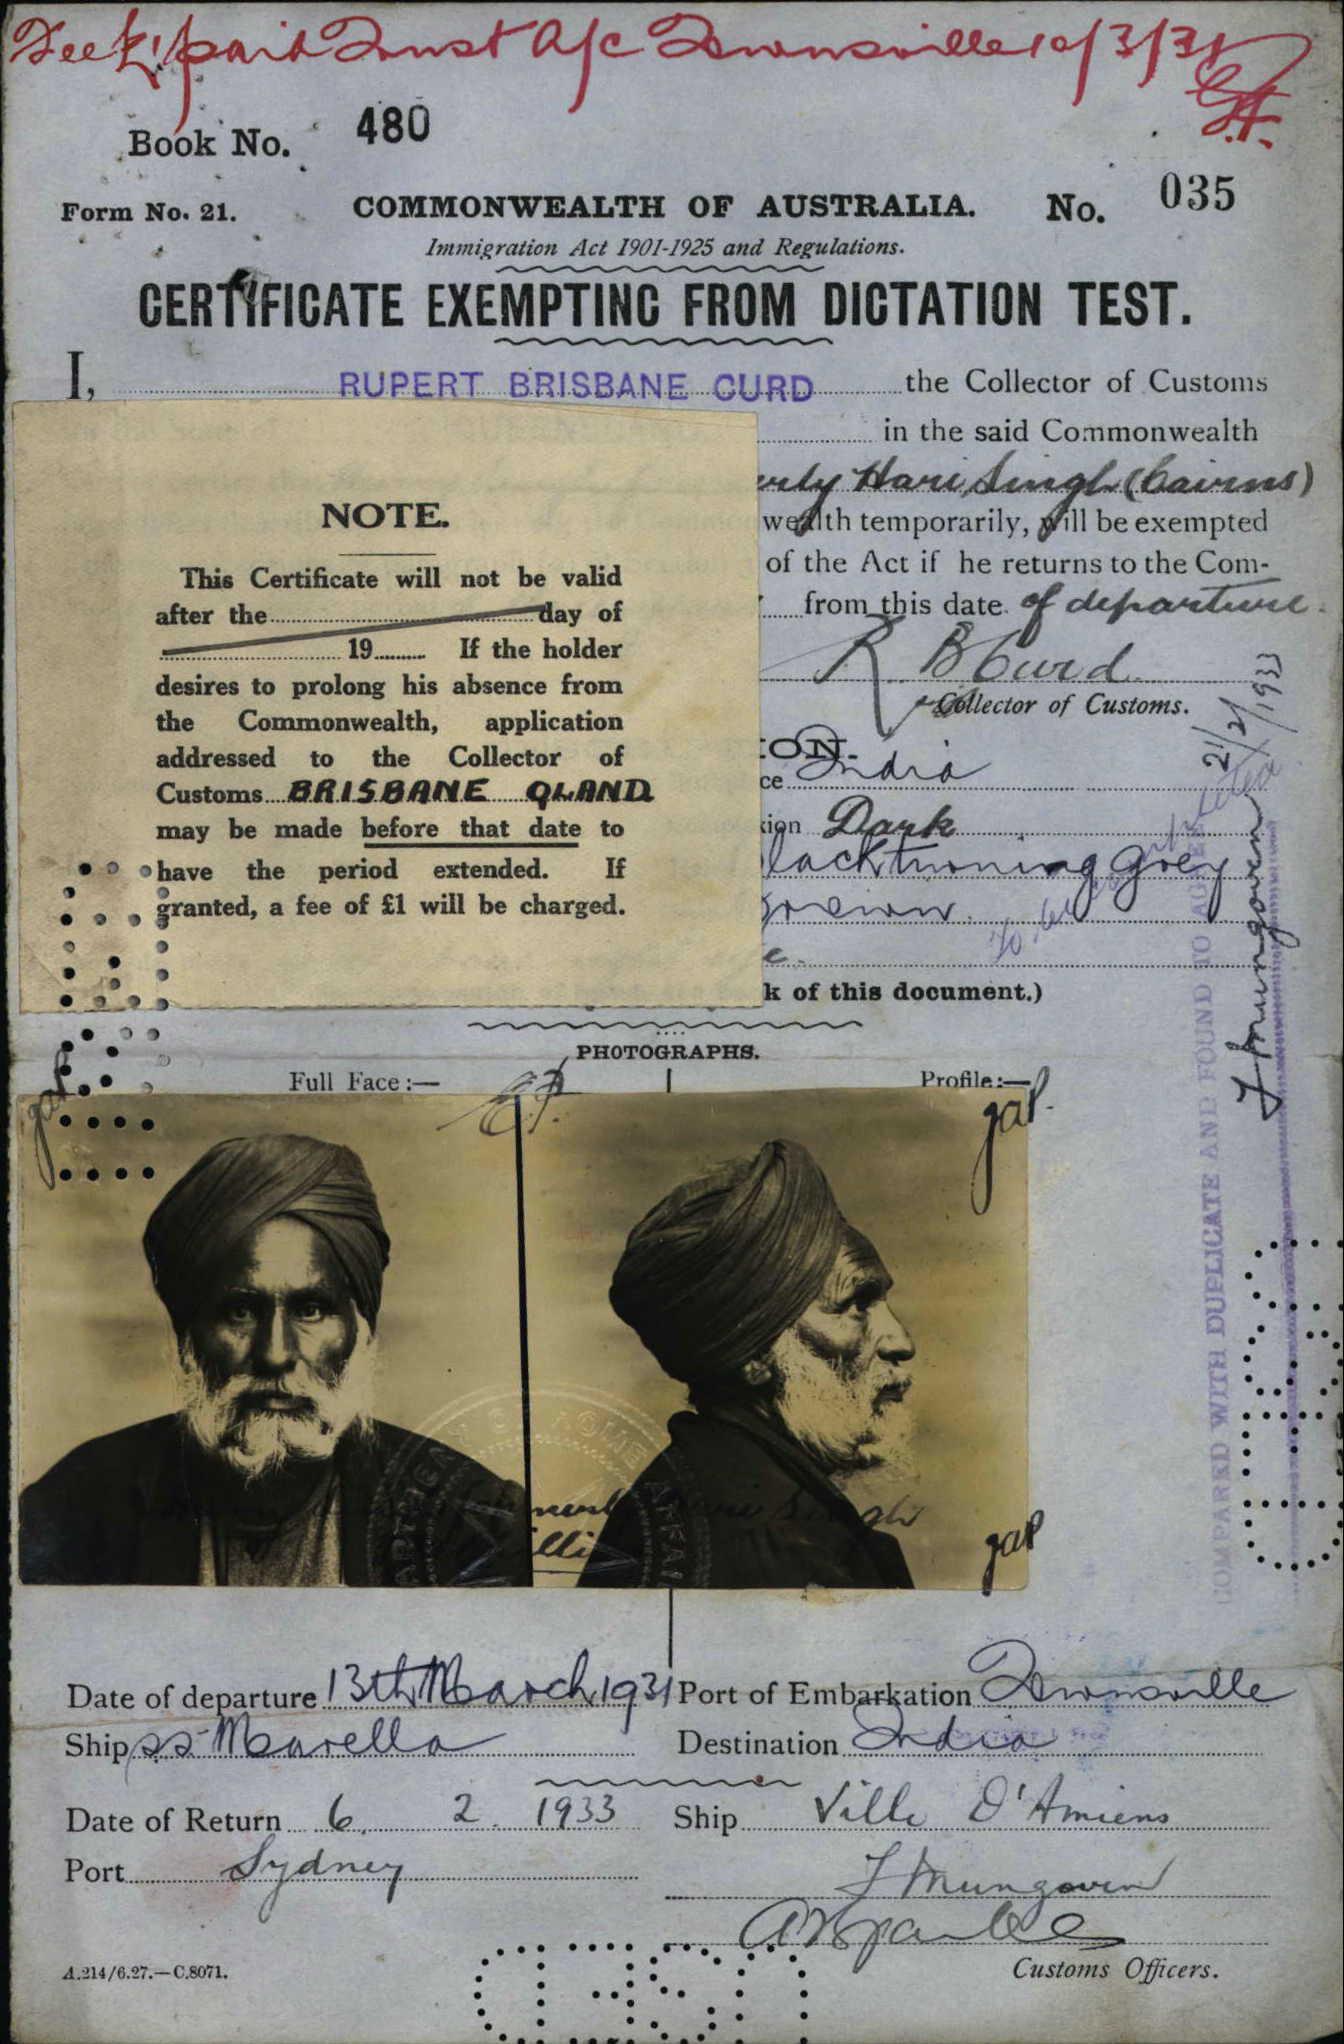 Fee £1 paid Trust A/c Townsville 10/3/31
Book No. 480
Form No. 21. COMMONWEALTH OF AUSTRALIA. No. 035
Immigration Act 1901-1925 and Regulations.
CERTIFICATE EXEMPTING FROM DICTATION TEST.
I, RUPERT BRISBANE CURD the Collector of Customs
in the said Commonwealth
Hari Singh (Cairns)
wealth temporarily, will be exempted
of the Act if he returns to the Com-
from this date of departure.
R B Curd
Collector of Customs.
NOTE.
This Certificate will not be valid
after the day of
19 If the holder
desires to prolong his absence from
the Commonwealth, application
addressed to the Collector of
Customs BRISBANE QLAND
may be made before that date to
have the period extended. If
granted, a fee of £1 will be charged.
ION.
ce India
xion Dark
lack turning grey
rown
k of this document.)
21/2/1933
F Mungoven
COMPARED WITH DUPLICATE AND FOUND TO AGREE
PHOTOGRAPHS.
Full Face:— Profile:—
gap
gap
gap
Date of departure 13th March 1931 Port of Embarkation Townsville
Ship ss Marella Destination India
Date of Return 6. 2. 1933 Ship Ville D'Amiens
Port Sydney
F Mungoven
Customs Officers.
A.214/6.27.—C.8071.